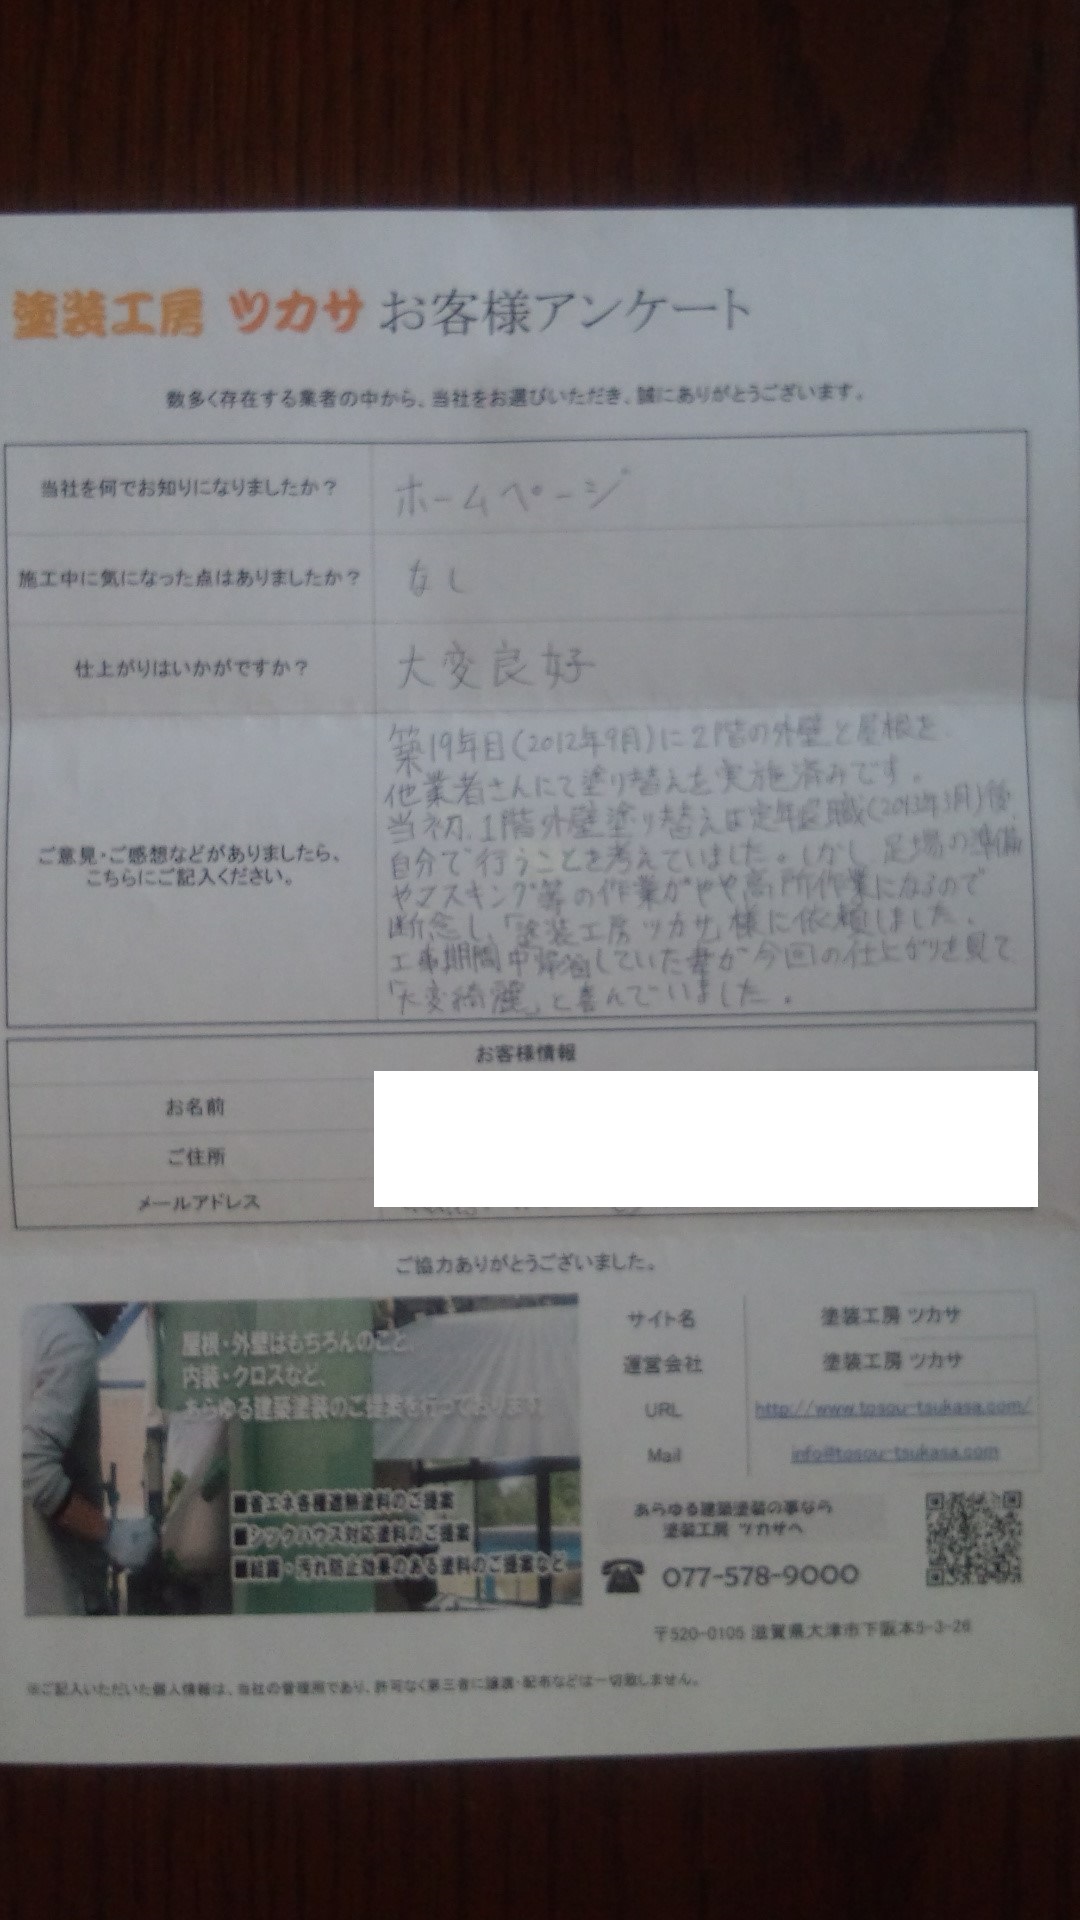 塗装工房 ツカサ お客様アンケート
数多く存在する業者の中から、当社をお選びいただき、誠にありがとうございます。
当社を何でお知りになりましたか？
ホームページ
施工中に気になった点はありましたか？
なし
仕上がりはいかがですか？
大変良好
ご意見・ご感想などがありましたら、
こちらにご記入ください。
築19年目(2012年9月)に2階の外壁と屋根を、
他業者さんにて塗り替えを実施済みです。
当初、1階外壁塗り替えは定年退職(2013年3月)後、
自分で行うことを考えていました。しかし足場の準備
やマスキング等の作業がやや高所作業になるので
断念し、「塗装工房ツカサ」様に依頼しました。
工事期間中していた妻が今回の仕上がりを見て
「大変綺麗」と喜んでいました。
お客様情報
お名前
ご住所
メールアドレス
ご協力ありがとうございました。
屋根・外壁はもちろんのこと、
内装・クロスなど、
あらゆる建築塗装のご提案を行っております
■省エネ各種遮熱塗料のご提案
■シックハウス対応塗料のご提案
■結露・汚れ防止効果のある塗料のご提案など
サイト名 塗装工房 ツカサ
運営会社 塗装工房 ツカサ
URL http://www.tosou-tsukasa.com/
Mail info@tosou-tsukasa.com
あらゆる建築塗装の事なら
塗装工房 ツカサへ
077-578-9000
〒520-0105 滋賀県大津市下阪本5-3-26
※ご記入いただいた個人情報は、当社の管理所であり、許可なく第三者に譲渡・配布などは一切致しません。